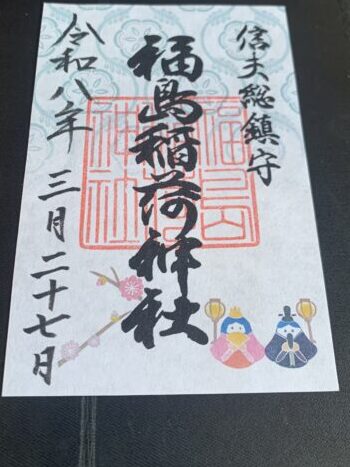 信夫総鎮守
福島稲荷神社
令和八年 三月二十七日
福島
稲荷
神社